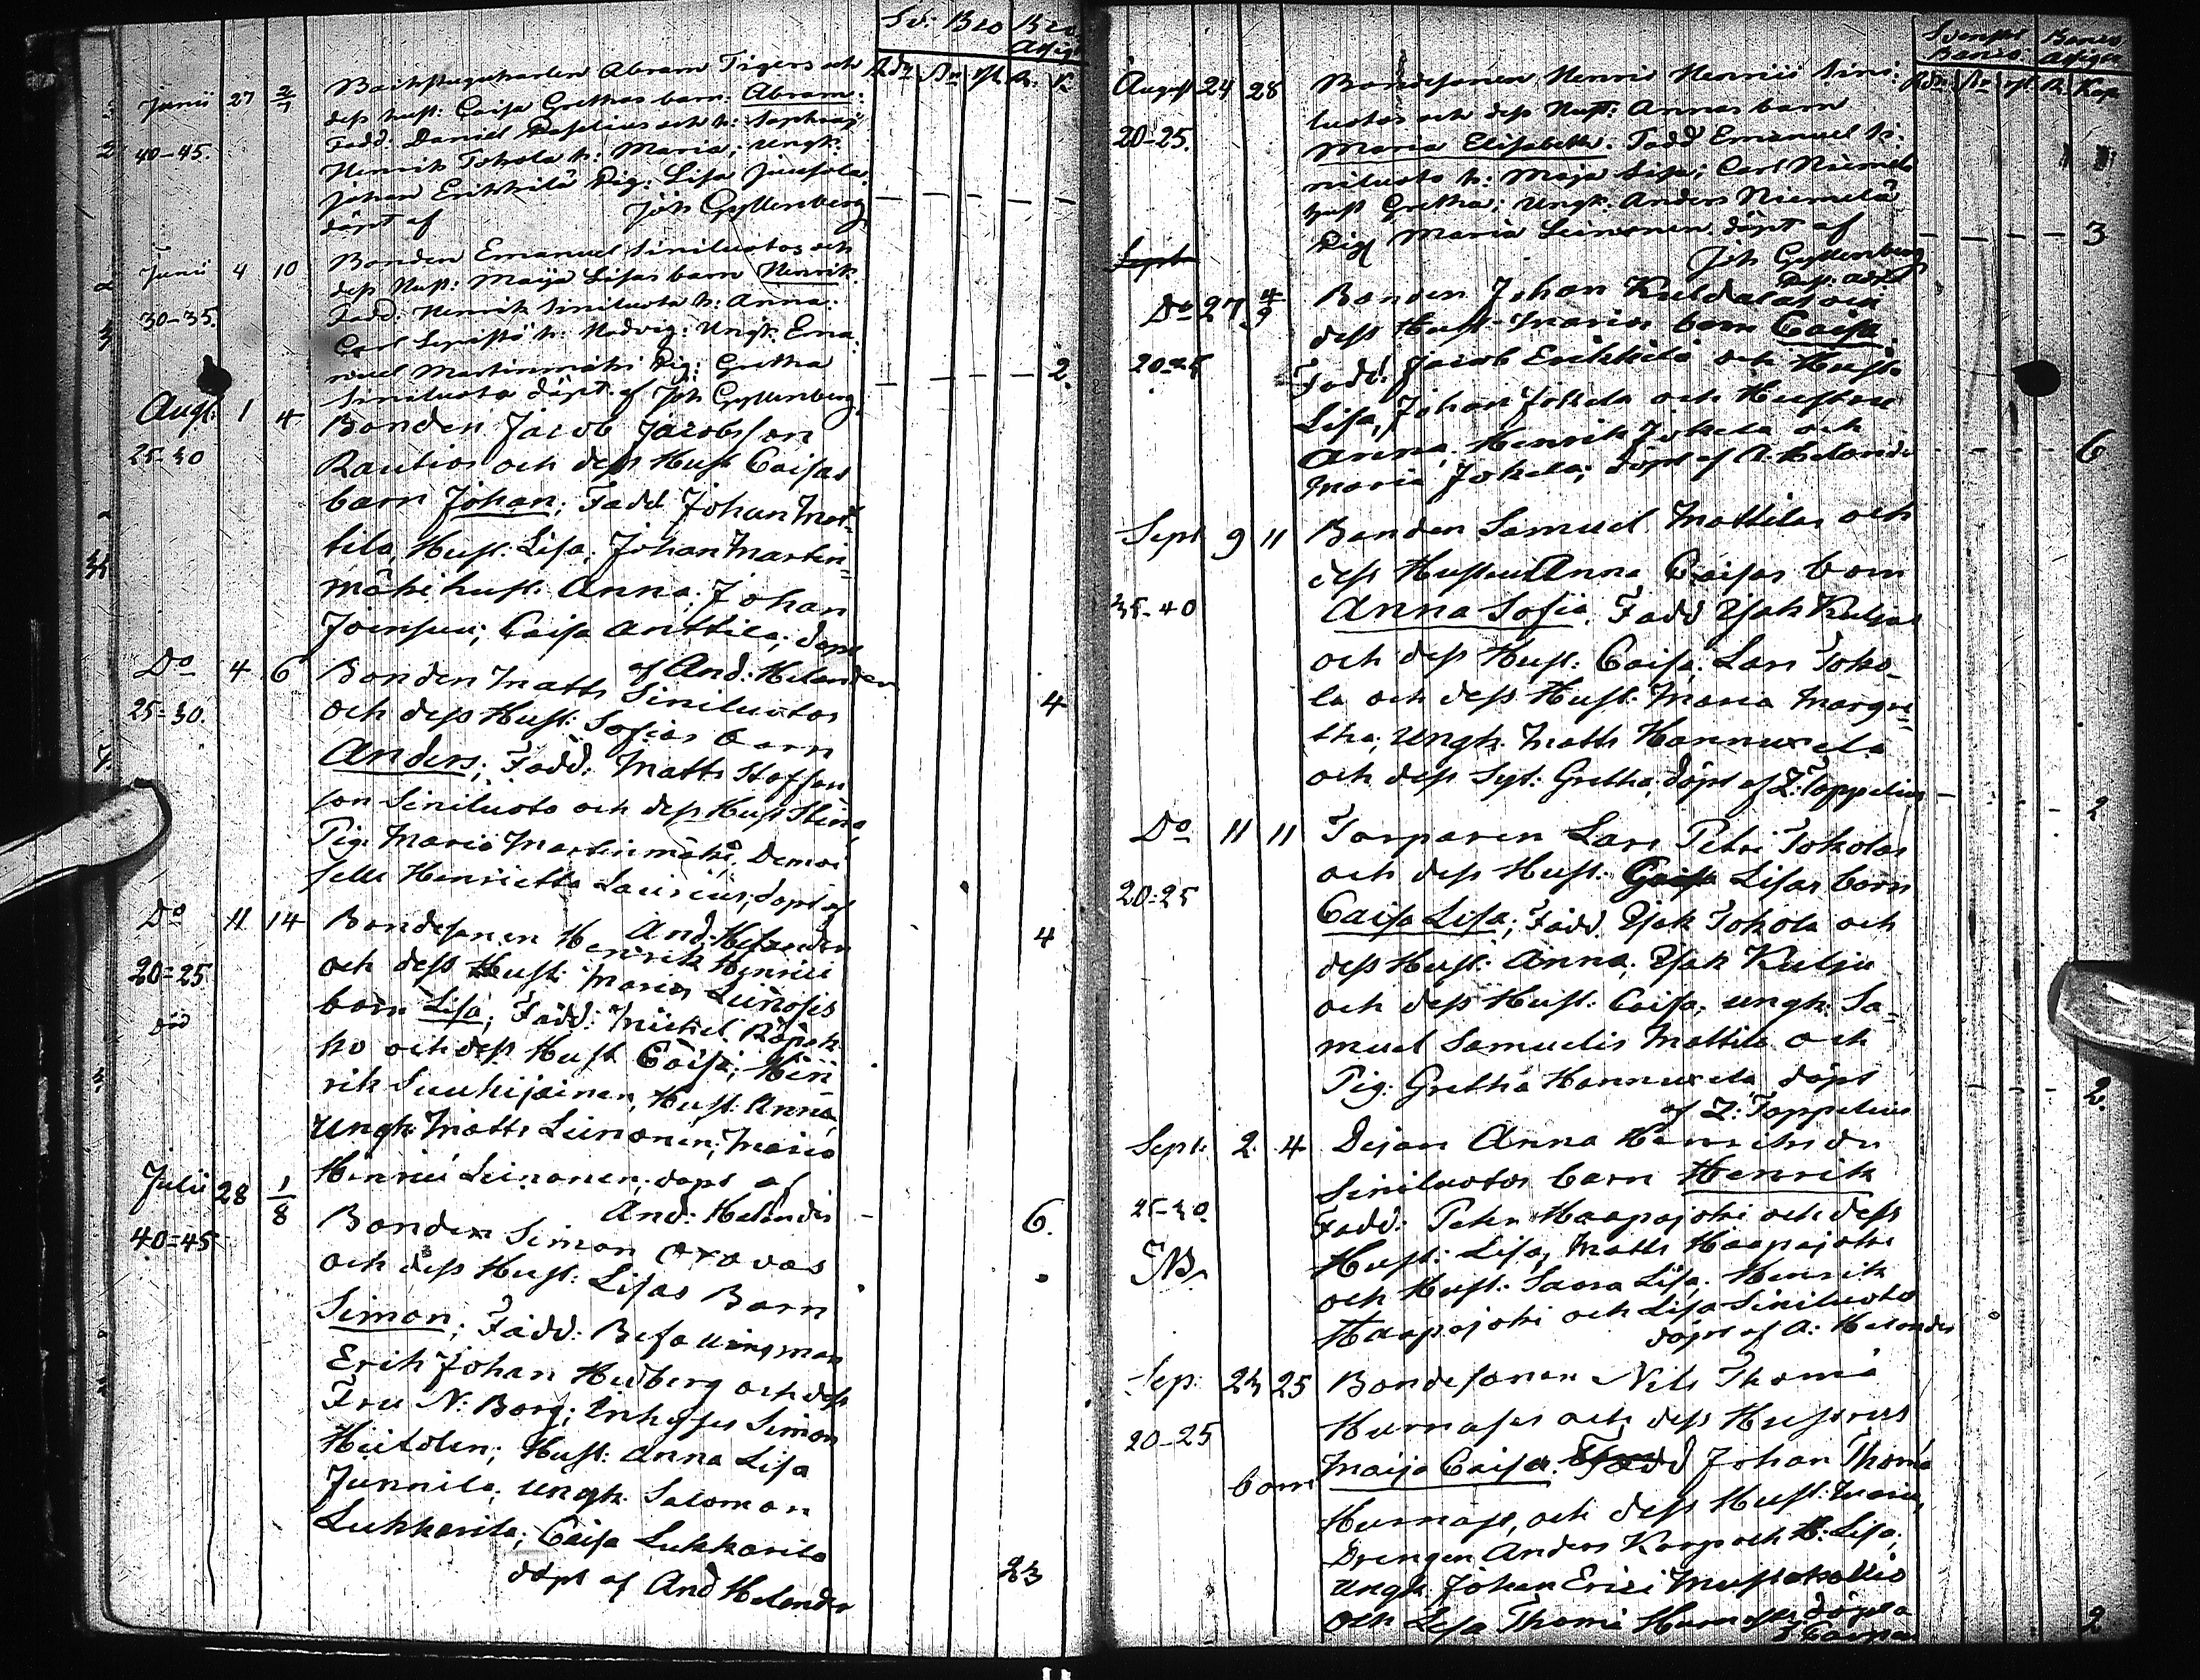 Sv: Bco Bco
Assign
Rdr
Junii 27 2/7
Abram Tigers och
dess hust: Caisa Grethas barn: Abram:
Fadd: Daniel och h:
Henrik Tokola h: Maria; ungk:
Johan Erikkilä Pig: Lisa
döpt af Joh Gyllenberg
40-45.
Junii 4 10
Bonden Emanuel Siniluotos och
dess Hust: Maija Lisas barn Henrik.
Fadd: Henrik Siniluota h: Anna:
Carl h: Hedvig: Ungk: Ema:
nuel Martinmäki Pig: Gretha
Siniluoto döpt af Joh Gyllenberg
30-35.
2.
Augt: 1 4
Bonden Jacob Jacobsson
Rautios och dess Hust Caisas
barn Johan; Fadd Johan Mat-
tila, Hust: Lisa; Johan Martin-
mäki hust: Anna; Johan
Joensuu; Caisa Anttila; döpt
af And: Helander
25-30
4
Do 4 6
Bonden Matts Siniluotos
och dess Hust: Sofias barn
Anders; Fadd: Matts Staffan
son Siniluoto och dess Hust Stina
Pig: Maria Martinmäki, Demoi
selle Henrietta Laurius; döpt af
And: Helander
25-30.
4
Do 11 14
Bondesonen Henrik Henrici
och dess Hust: Marias Leinosis
barn Lisa; Fadd: Michel
ko och dess Hust Caisa; Hen
rik Suuhijainen, Hust: Anna,
Ungk: Matts Leinonen; Maria
Henrici Leinonen; döpt af
And: Helander
20-25
död
6.
Julii 28 1/8
Bonden Simon Oravas
och dess Hust: Lisas Barn
Simon; Fadd: Befallningsman
Erik Johan Hedberg och dess
Fru N: Borg; Inhyses Simon
Hietolen; Hust: Anna Lisa
Junnila; ungk. Salomon
Lukkarila; Caisa Lukkarila
döpt af And Helander
40-45
23
Svenske Banco
Banco Assigner
Rdr Kop
August 24 28
Bondesonen Henric Henrici Sini:
luotos och dess Hust: Annas barn
Maria Elisabeth: Fadd Emanuel Si:
niluoto h: Maja Lisa; Carl Niemelä
hust Gretha; Ungk: Anders Niemelä
Pig Maria Leinonen döpt af
Joh Gyllenberg
20-25.
3
Sept
Do 27 4/9
Bonden Johan och
dess Hust: Marias barn Caisa
Fadd: Jacob Erikkilä och Hust:
Lisa, Johan Jokela och Hustru
Anna. Henrik Jokela och
Maria Jokela; döpt af A: Helander
20-25
6
Sept 9 11
Bonden Samuel Mattilas och
dess Hustrus Anna Caisas barn
Anna Sofia. Fadd Isak Kulju
och dess Hust: Caisa; Lars Toko-
la och dess Hust: Maria Margre-
tha; Ungk: Matts Hannuxela
och dess Syst: Gretha, döpt af Z: Toppelius
35-40
2
Do 11 11
Torparen Lars Petri Tokolas
och dess Hust: Caisa Lisas barn
Caisa Lisa; Fadd. Isak Tokola och
dess Hust: Anna; Isak Kulju
och dess Hust: Caisa; ungk: Sa-
muel Samuelis Mattila och
Pig: Gretha Hannuxela döpt
af Z: Toppelius
20-25
2.
Sept: 2 4
Dejan Anna
Siniluotos barn Henrik
Fadd: Peter Haapajoki och dess
Hust: Lisa; Matts Haapajoki
och Hust: Saara Lisa. Henrik
Haapajoki och Lisa Siniluoto
döpt af A: Helander
25-30.
NB.
Sep: 24 25
Bondesonen Nils Thomä
Hurnases och dess Hustrus
barn Maija Caisa. Fadd Johan Thomä
Hurnass, och dess Hust: Maria,
Drengen Anders Karp och H: Lisa;
ungk. Johan Erici Mustakallio
och Lisa Thomä döpta
20-25
2